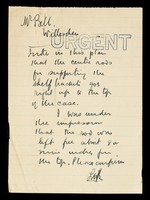 Mr Bell.
Willesden
URGENT
in this plan
that the centre rod
for supporting the
shelf brackets goes
right up to the top
of the case.
I was under
the impression
that the rod was
left for about
under for
the top. Please confirm